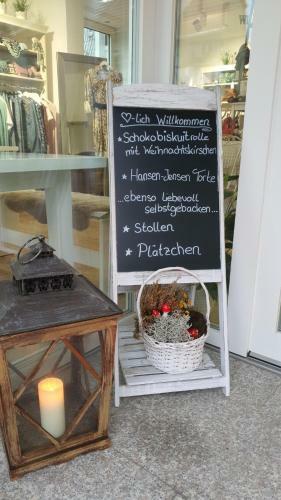 ♡-lich Willkommen
* Schokobiskuitrolle
mit Weihnachtskirschen
* Hansen-Jensen Torte
...ebenso liebevoll
selbstgebacken...
* Stollen
* Plätzchen